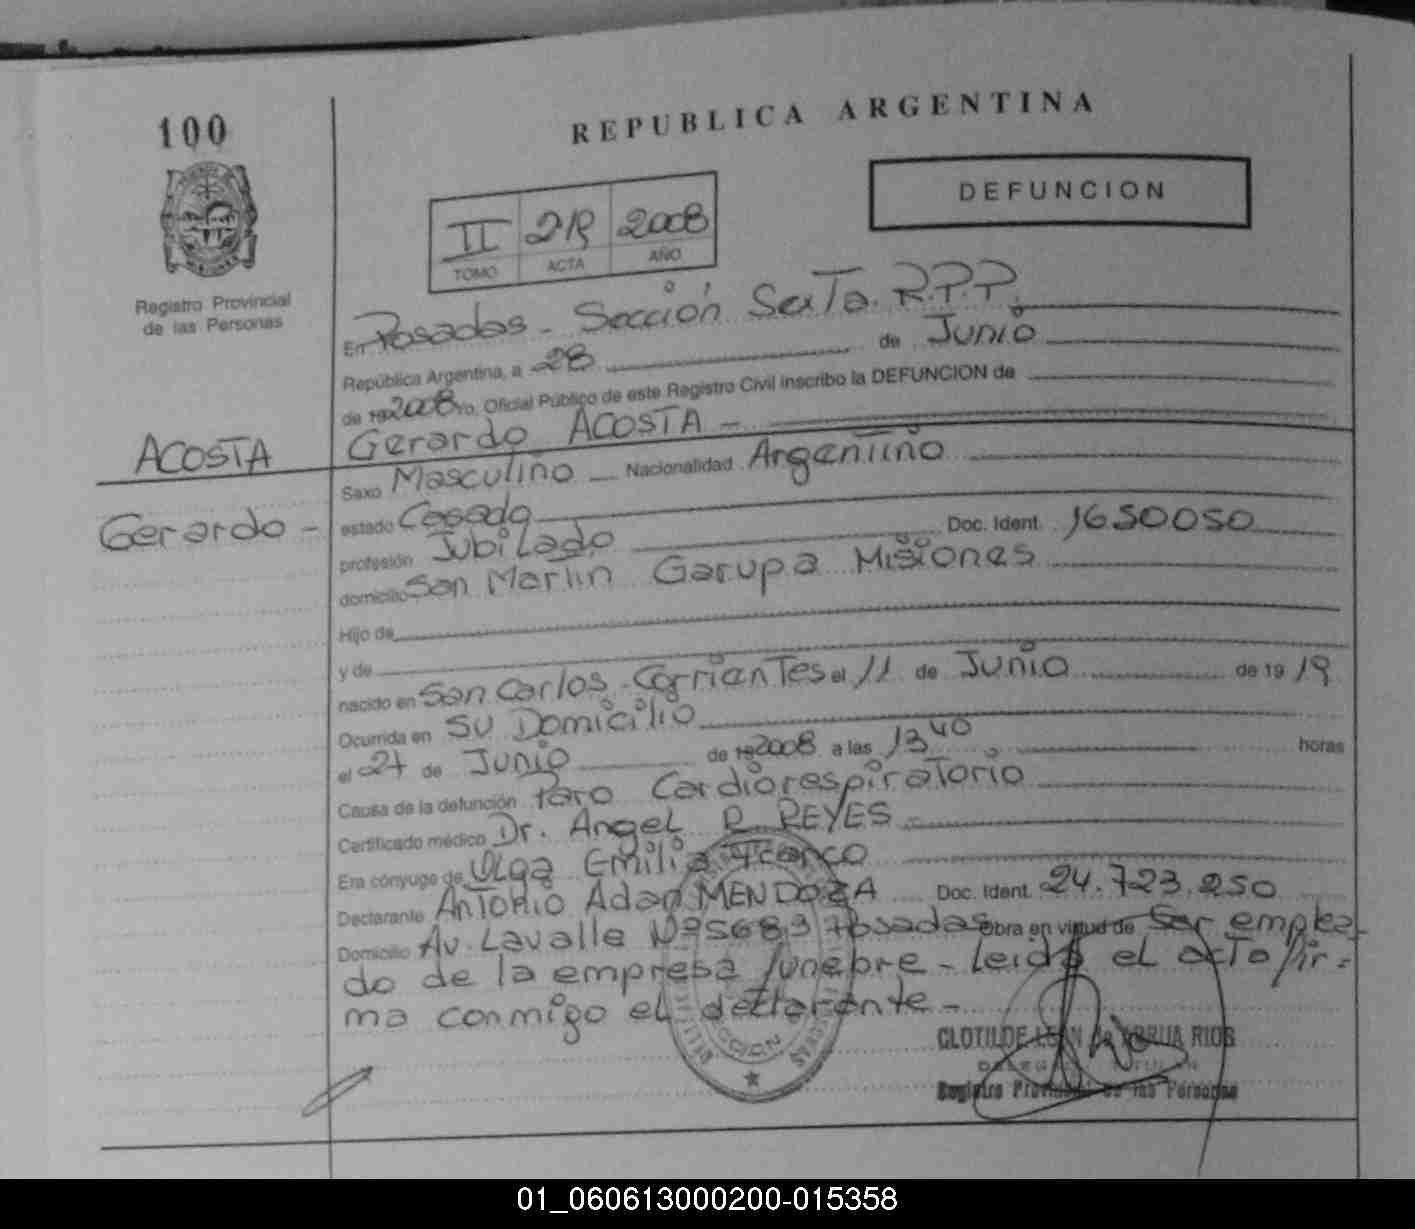 100
REPUBLICA ARGENTINA
DEFUNCION
II 2008
TOMO ACTA AÑO
Registro Provincial
de las Personas
En Posadas - Sección Sexta. R.P.P.
República Argentina, a 28 de Junio
de 19 2008 Yo, Oficial Público de este Registro Civil inscribo la DEFUNCION de
ACOSTA
Gerardo -
Gerardo ACOSTA -
Sexo Masculino Nacionalidad Argentino
estado Casado
profesión Jubilado Doc. Ident. 1650050
domicilio San Martin Garupa Misiones
Hijo de
y de
nacido en San Carlos - Corrientes el 11 de Junio de 19 19
Ocurrida en SU Domicilio
el 27 de Junio de 19 2008 a las 13 40 horas
Causa de la defunción Paro Cardiorespiratorio
Certificado médico Dr. Angel R REYES -
Era cónyuge de Olga Emilia
Declarante Antonio Adan MENDOZA Doc. Ident. 24.723.250
Domicilio Av. Lavalle Nº5683 Posadas Obra en virtud de Ser emplea-
do de la empresa funebre - Leida el acto fir=
ma conmigo el declarante -
CLOTILDE de ARRUA RIOS
Registro Provincial de las Personas
01_060613000200-015358